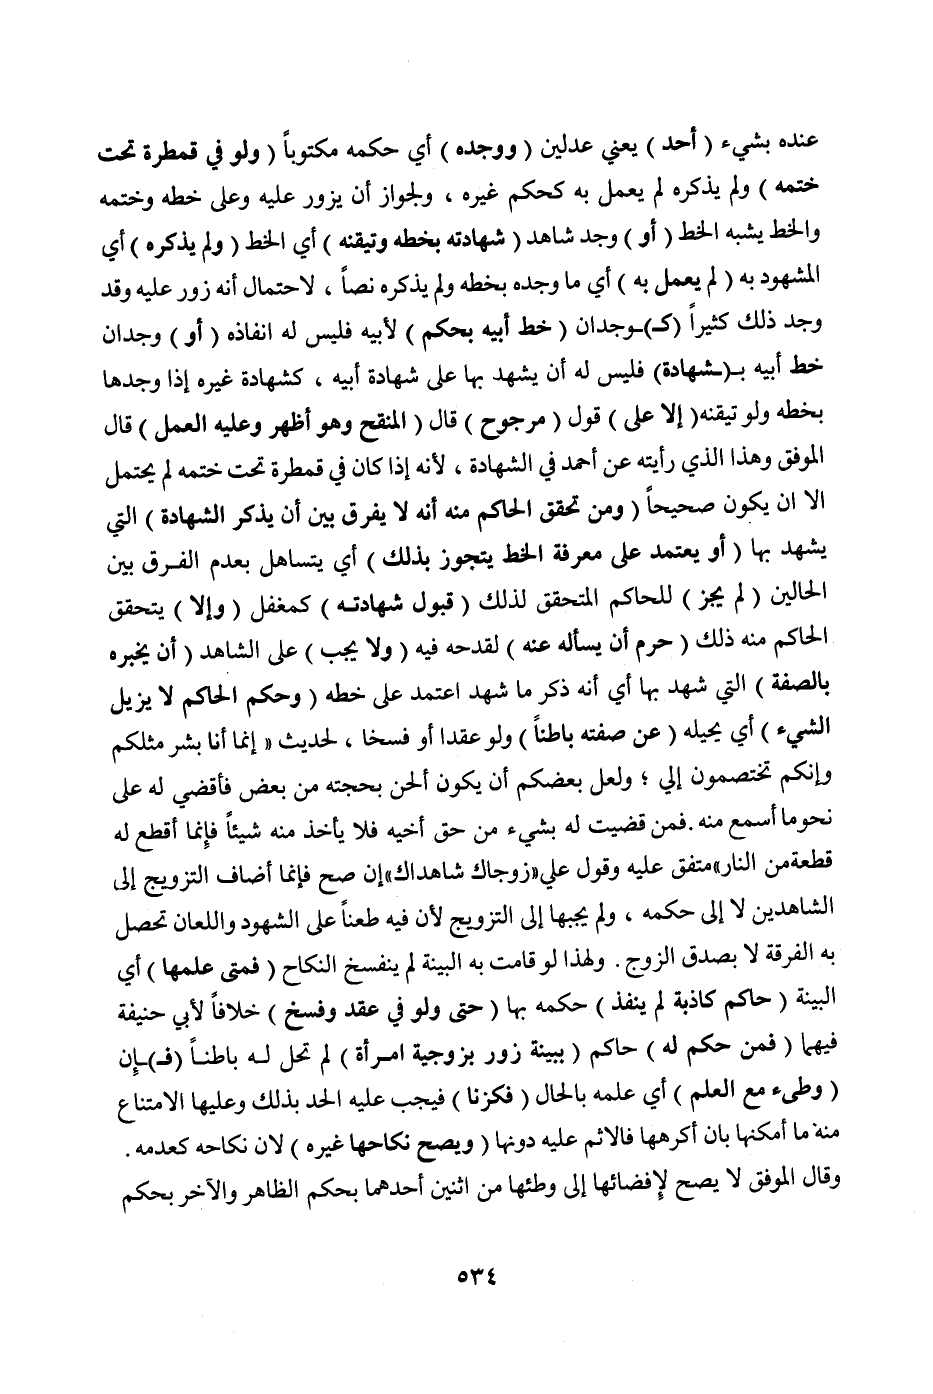 عنده بشيء ( أحد ) يعني عدلين ( ووجده ) أي حكمه مكتوباً ( ولو في قمطرة تحت
ختمه ) ولم يذكره لم يعمل به كحكم غيره ، ولجواز أن يزور عليه وعلى خطه وختمه
والخط يشبه الخط ( أو ) وجد شاهد ( شهادته بخطه وتيقنه ) أي الخط ( ولم يذكره ) أي
المشهود به ( لم يعمل به ) أي ما وجده بخطه ولم يذكره نصاً ، لاحتمال أنه زور عليه وقد
وجد ذلك كثيراً (كـ)ـوجدان ( خط أبيه بحكم ) لأبيه فليس له انفاذه ( أو ) وجدان
خط أبيه بـ(ـشهادة) فليس له أن يشهد بها على شهادة أبيه ، كشهادة غيره إذا وجدها
بخطه ولو تيقنه( إلا على ) قول ( مرجوح ) قال ( المنقح وهو أظهر وعليه العمل ) قال
الموفق وهذا الذي رأيته عن أحمد في الشهادة ، لأنه إذا كان في قمطرة تحت ختمه لم يحتمل
الا ان يكون صحيحاً ( ومن تحقق الحاكم منه أنه لا يفرق بين أن يذكر الشهادة ) التي
يشهد بها ( أو يعتمد على معرفة الخط يتجوز بذلك ) أي يتساهل بعدم الفرق بين
الحالين ( لم يجز ) للحاكم المتحقق لذلك ( قبول شهادته ) كمغفل ( وإلا ) يتحقق
الحاكم منه ذلك ( حرم أن يسأله عنه ) لقدحه فيه ( ولا يجب ) على الشاهد ( أن يخبره
بالصفة ) التي شهد بها أي أنه ذكر ما شهد اعتمد على خطه ( وحكم الحاكم لا يزيل
الشيء ) أي يحيله ( عن صفته باطناً ) ولو عقدا أو فسخا ، لحديث « إنما أنا بشر مثلكم
وإنكم تختصمون إلي ؛ ولعل بعضكم أن يكون ألحن بحجته من بعض فأقضي له على
نحوما أسمع منه .فمن قضيت له بشيء من حق أخيه فلا يأخذ منه شيئاً فإنما أقطع له
قطعةمن النار»متفق عليه وقول علي«زوجاك شاهداك»إن صح فإنما أضاف التزويج إلى
الشاهدين لا إلى حكمه ، ولم يجبها إلى التزويج لأن فيه طعناً على الشهود واللعان تحصل
به الفرقة لا بصدق الزوج . ولهذا لو قامت به البينة لم ينفسخ النكاح ( فمتى علمها ) أي
البينة ( حاكم كاذبة لم ينفذ ) حكمه بها ( حتى ولو في عقد وفسخ ) خلافاً لأبي حنيفة
فيهما ( فمن حكم له ) حاكم ( ببينة زور بزوجية امرأة ) لم تحل له باطناً (فـ)ـإن
( وطىء مع العلم ) أي علمه بالحال ( فكزنا ) فيجب عليه الحد بذلك وعليها الامتناع
منه ما أمكنها بان أكرهها فالاثم عليه دونها ( ويصح نكاحها غيره ) لان نكاحه كعدمه .
وقال الموفق لا يصح لإفضائها إلى وطئها من اثنين أحدهما بحكم الظاهر والآخر بحكم
٥٣٤